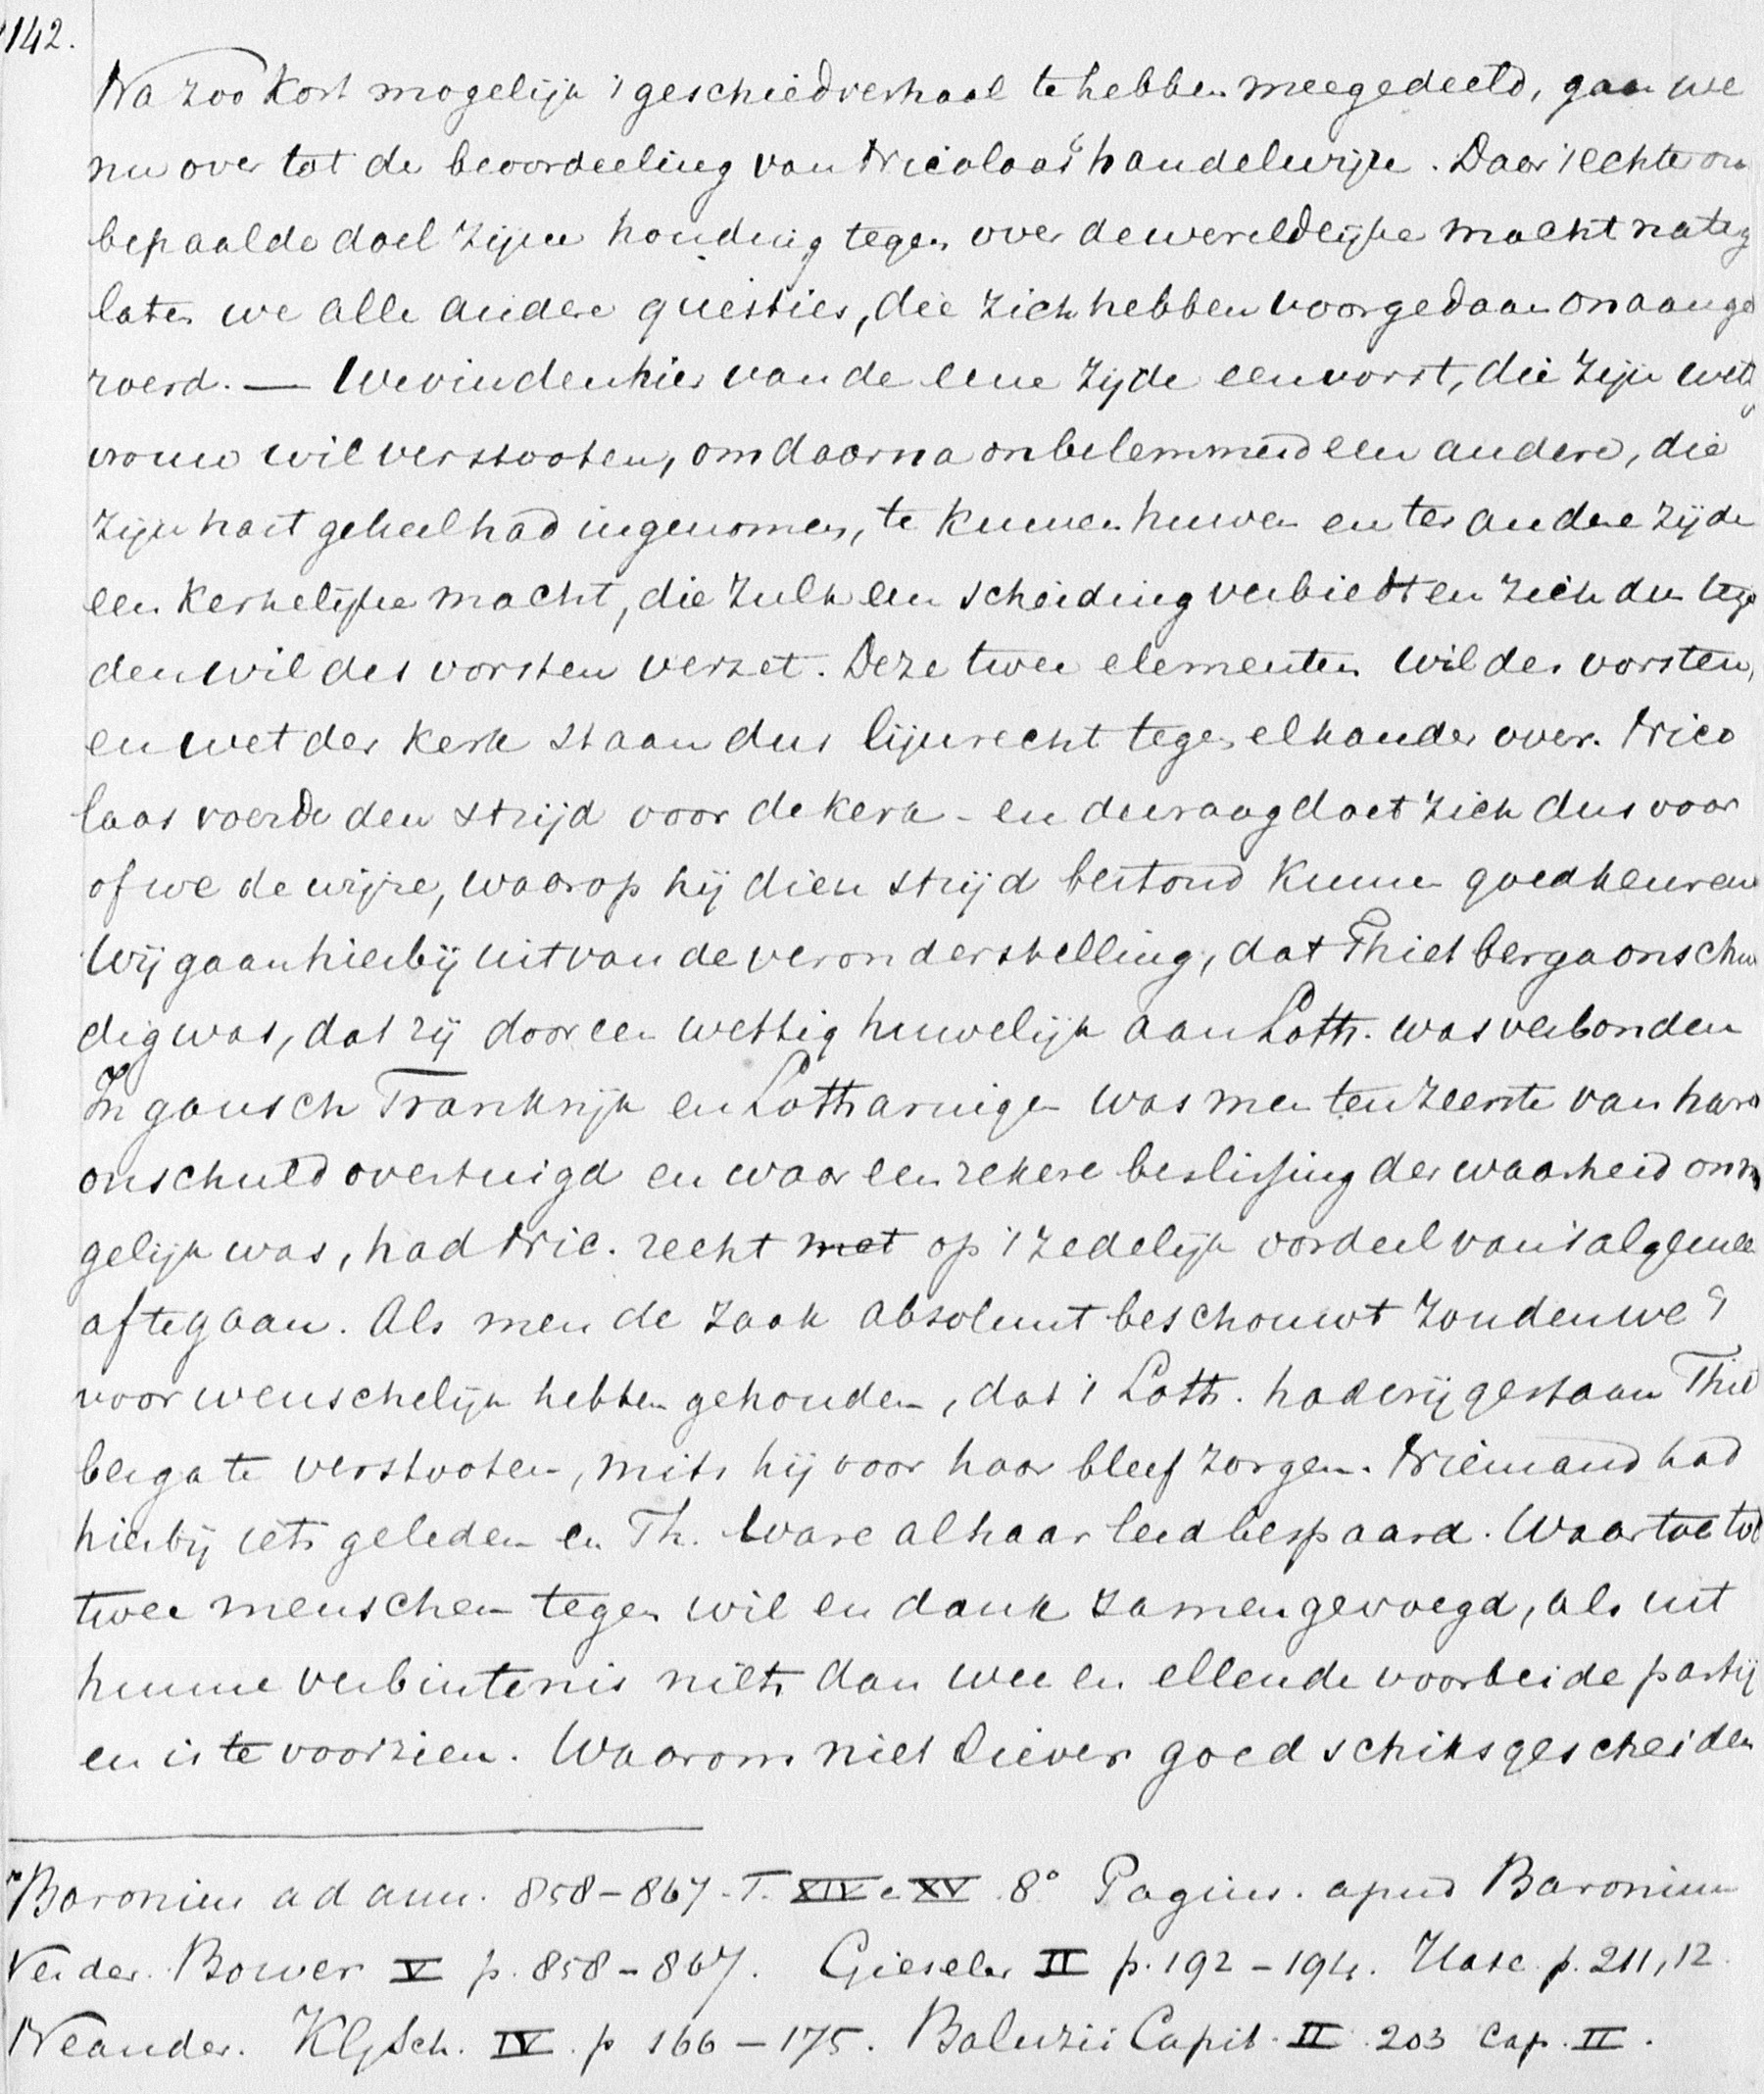 142.
Na zoo kort mogelijk 't geschiedverhaal te hebben meegedeeld, gaan we
nu over tot de beoordeeling van Nicolaas' handelwijze. Daar 't echter on
bepaalde doel zijne houding tegen over de wereldlijke macht
laten we alle andere questies, die zich hebben voorgedaan onaange
roerd. — We vinden hier van de eene zijde een vorst, die zijn
vrouw wil verstooten, om daarna onbelemmerd een andere, die
zijn hart geheel had ingenomen, te kunnen huwen en ter andere zijde
een kerkelijke macht, die zulk een scheiding verbiedt en zich dus tege
den wil des vorsten verzet. Deze twee elementen wil des vorsten,
en wet der kerk staan dus lijnrecht tegen elkander over. Nico
laas voerde den strijd voor de kerk - en de vraag doet zich dus voor
of we de wijze, waarop hij dien strijd bestond kunnen goedkeuren
Wij gaan hierbij uit van de veronderstelling, dat Thietberga onschu
dig was, dat zij door een wettig huwelijk aan Loth. was verbonden
In gansch Frankrijk en Lotharingen was men ten zeerste van hare
onschuld overtuigd en waar een zekere beslissing der waarheid onm
gelijk was, had Nic. recht met op 't zedelijk oordeel van 't algemee
af te gaan. Als men de zaak absoluut beschouwt zouden we 't
voor wenschelijk hebben gehouden, dat 't Loth. had vrijgestaan Thiet
berga te verstooten, mits hij voor haar bleef zorgen. Niemand had
hierbij iets geleden en Th. ware al haar leed bespaard. Waartoe toc
twee menschen tegen wil en dank zamengevoegd, als uit
hunne verbintenis niets dan wee en ellende voor beide partij
en is te voorzien. Waarom niet liever goedschiks gescheiden
Baronius ad ann. 858-867. T. XIV e XV. 8° Pagius. apud Baronium
Verder. Bower V p. 858-867. Gieseler II p. 192-194. Hase p. 211,12.
Neander. KGSch. IV. p 166-175. Baluzii Capit. II 203 Cap. II.